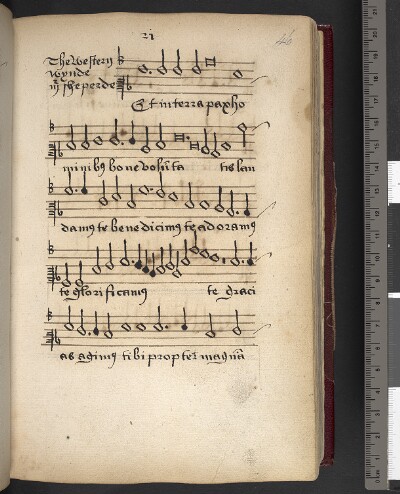 21
46
The western
wynde
sheperde
Et in terra pax ho
minibꝰ bone volūta tis lau
damꝰ te bene dicimꝰ te ad oramꝰ
te glori ficamꝰ te graci
as agimꝰ ti bi prop ter magnā